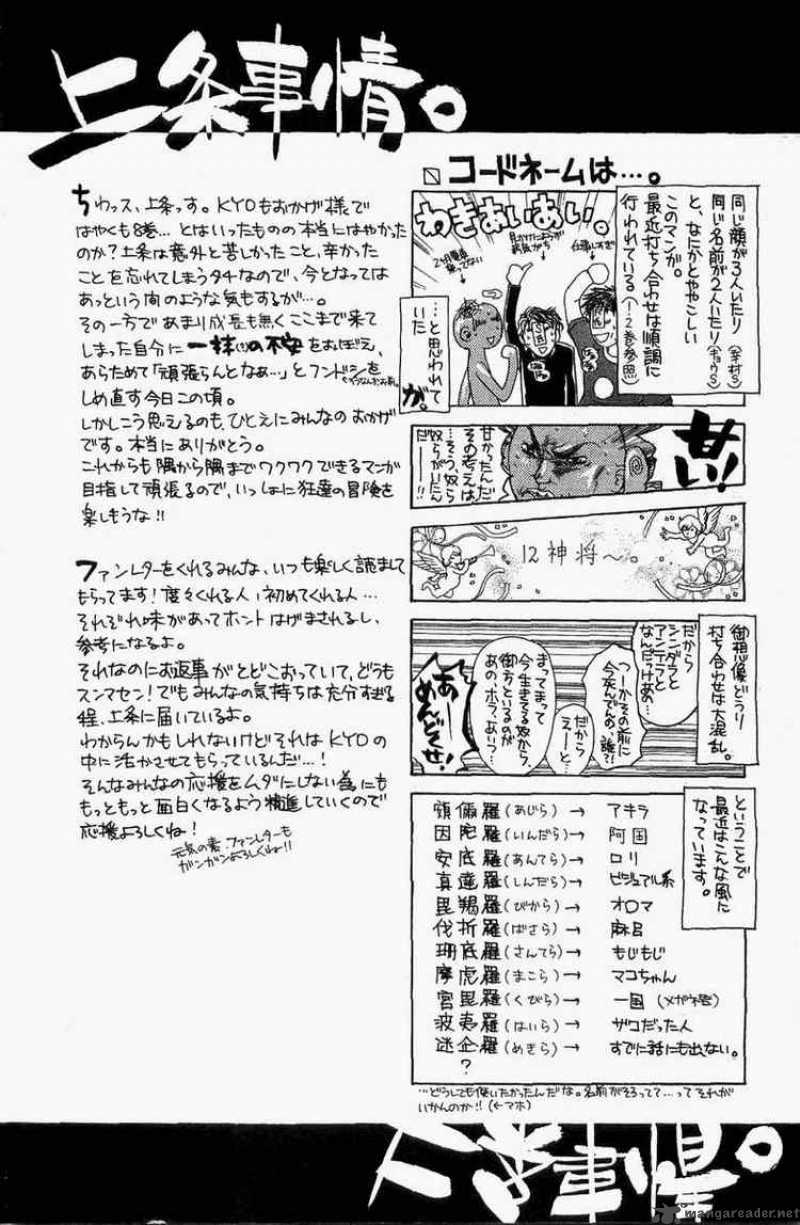 上条事情。
ちわっス、上条っす。KYOもおかげ様で
はやくも8巻…とはいったものの本当にはやかった
のか?上条は意外と苦しかったこと、辛かった
ことを忘れてしまうタチなので、今となっては
あっという間のような気もするが…。
その一方であまり成長も無くここまで来て
しまった自分に一抹の不安をおぼえ、
あらためて「頑張らんとなぁ…」とフンドシを
しめ直す今日この頃。
しかしこう思えるのも、ひとえにみんなのおかげ
です。本当にありがとう。
これからも隅から隅までワクワクできるマンガ
目指して頑張るので、いっしょに狂達の冒険を
楽しもうな!!
ファンレターをくれるみんな、いつも楽しく読ませて
もらってます!度々くれる人、初めてくれる人…
それぞれ味があってホントはげまされるし、
参考になるよ。
それなのにお返事がとどこおっていて、どうも
スンマセン!でもみんなの気持ちは充分すぎる
程、上条に届いているよ。
わからんかもしれないけどそれはKYOの
中に活かさせてもらっているんだ…!
そんなみんなの応援をムダにしない為にも
もっともっと面白くなるよう精進していくので
応援よろしくね!
元気の素、ファンレターも
ガンガンよろしくね!!
コードネームは…。
同じ顔が3人いたり(幸村S)
同じ名前が2人いたり(キョウS)
と、なにかとややこしい
このマンガ。
最近打ち合わせは順調に
行われている(12巻参照)
わきあいあい。
…と思われて
いた
が。
甘い!
甘かったんだ
その考えは
…そう、奴ら
奴らがいたん
だー!!
12神将〜。
御想像どうり
打ち合わせは大混乱。
だから
シンダラと
アンテラと
なんだけどあ…
つーかその前に
今死んでんの、誰?!
だから
えーと…
まってまって
今生きてる奴から、
御方といるのが
あの、ホラ、あいつ…
あー
めんどくせ!
ということで
最近はこんな風に
なっています。
頞儞羅(あじら)→ アキラ
因陀羅(いんだら)→ 阿国
安底羅(あんてら)→ ロリ
真達羅(しんだら)→ ビジュアル系
毘羯羅(びから)→ オロマ
伐折羅(ばさら)→ 麻呂
珊底羅(さんてら)→ もじもじ
摩虎羅(まこら)→ マコちゃん
宮毘羅(くびら)→ 一国(メガネ君)
波夷羅(はいら)→ ザコだった人
迷企羅(めきら)→ すでに話にも出ない。
?
…どうしても使いたかったんだな。名前がそろってて…ってそれが
いかんのか!!(←マホ)
上条事情。
mangareader.net